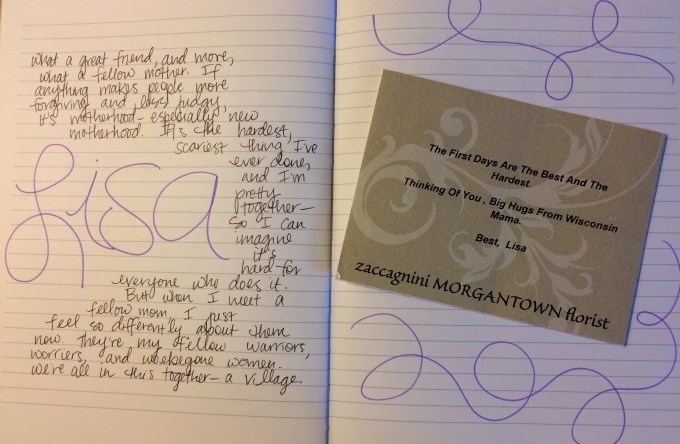 what a great friend, and more,
what a fellow mother. If
anything makes people more
forgiving and less judgy,
it's motherhood - especially new
motherhood. It's the hardest,
scariest thing I've
ever done,
and I'm
pretty
together-
so I can
imagine
it's
hard for
everyone who does it.
But when I meet a
fellow mom I just
feel so differently about them
now. They're my fellow warriors,
worriers, and woebegone women.
We're all in this together- a village.
Lisa
The First Days Are The Best And The
Hardest.
Thinking Of You , Big Hugs From Wisconsin
Mama.
Best, Lisa
zaccagnini MORGANTOWN florist